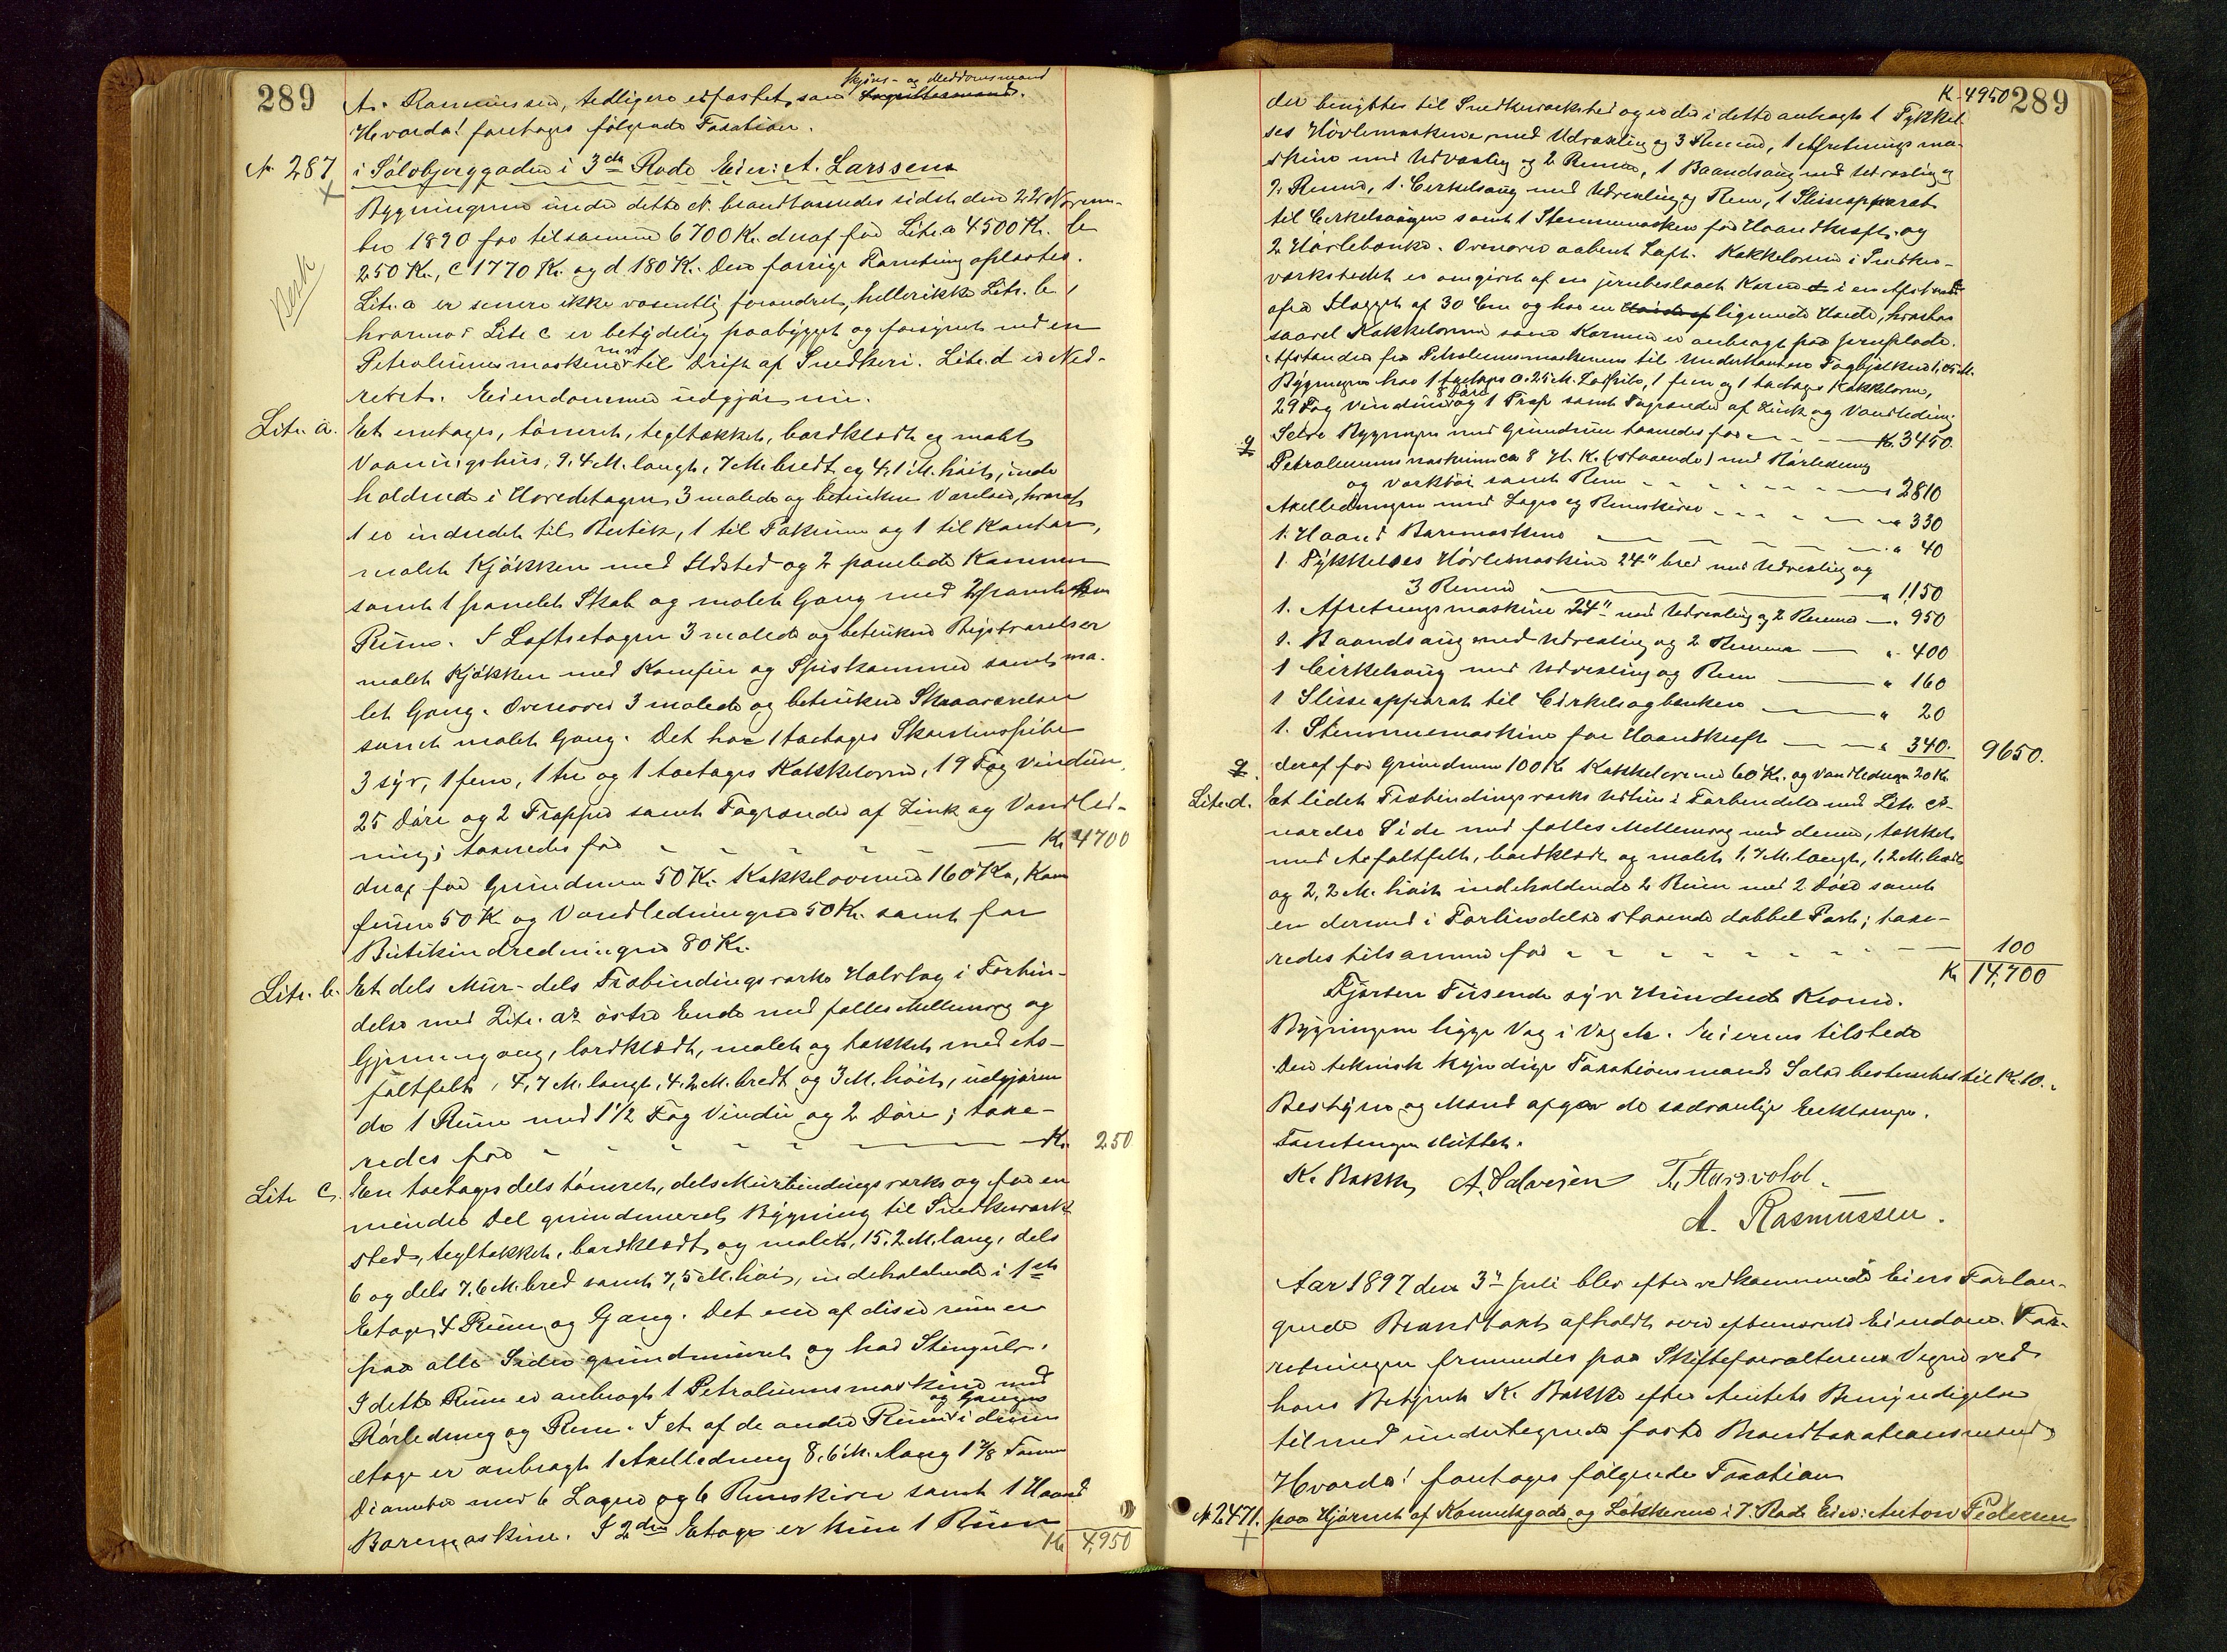 289
Skjöns- og Meddomsmand
A. Rasmussen, tidligere edfæstet som Lagrettesmand.
Hvorda! foretoges følgende Taxation.
N. 287 i Sölvbjerggaden i 3die Rode Eier: A. Larssen
Bygningerne under dette N. brandtaxeredes sidst den 22 Novem-
ber 1890 for tilsammen 6700 Kr. deraf for Litr. a 4500 Kr. b
250 Kr., c 1770 Kr. og d 180 Kr. Den forrige Taxering oplæstes.
Besk
Litr. a er senere ikke væsentlig forandret, heller ikke Litr. b,
hvorimod Litr. c er betydelig paabygget og forsynet med en
Petroleumsmaskine til Drift af Snedkeri. Litr. d er Ned-
revet. Eiendommen udgjør nu.
Litr. a. Et enetages, tömret, tegltækket, bordklædt og malet
Vaaningshus, 9,4 M. langt, 7 M. bredt og 4,1 M. höit, inde
holdende i Hovedetagen 3 malede og betrukne Værelser, hvoraf
1 er indredet til Butik, 1 til Pakrum og 1 til Kontor,
malet Kjökken med Ildsted og 2 panelede Kammer
samt 1 panelet Skab og malet Gang med 2 panelede
Rum. I Loftsetagen 3 malede og betrukne Bigværelser
malet Kjökken med Komfur og Spiskammer samt ma-
let Gang. Ovenover 3 malede og betrukne Skraaværelser
samt malet Gang. Det har 1 toetages Skorstenspibe
3 syv, 1 fem, 1 tre og 1 toetages Kakkelovne, 19 Fag Vinduer,
25 Döre og 2 Trapper samt Tagrender af Zink og Vandled-
ning; taxeredes for - - - - Kr. 4700
deraf for Grundmur 50 Kr. Kakkelovnene 160 Kr., Kom
furene 50 Kr. og Vandledningen 50 Kr. samt for
Butikindredningen 80 Kr.
Litr. b. Et dels Mur- dels Træbindingsværks Halvtag i Forbin-
delse med Litr. a's östre Ende med fælles Mellemvæg og
Gjennemgang, bordklædt, malet og tækket med As-
faltfilt, 4,7 M. langt, 4,2 M. bredt og 3 M. höit, udgjören
de 1 Rum med 1 1/2 Fag Vindu og 2 Döre; taxe-
redes for - - - - Kr. 250
Litr c. En toetages dels tömret, dels Murbindingsværks og for en
mindre Del grundmuret Bygning til Snedkerværk
sted, tegltækket, bordklædt og malet, 15,2 M. lang, dels
6 og dels 7,6 M. bred samt 7,5 M. höi, indeholdende i 1ste
Etage 4 Rum og Gang. Det ene af disse rum er
paa alle Sider grundmuret og har Stengulv.
I dette Rum er anbragt 1 Petroleumsmaskine med
og Gangen
Rörledning og Rem. I et af de andre Rum i denne
etage er anbragt 1 Axelledning 8,6 M. lang 1 7/8 Tomme
Diameter med 6 Lagre og 6 Remskiver samt 1 Haand
Boremaskine. I 2den Etage er kun 1 Rum
Kr 4,950
K. 4950 289
der benyttes til Snedkerværksted og er der i dette anbragt 1 Tykkel-
ses Hövlemaskine med Udvexling og 3 Remme, 1 Afretningsma-
skine med Udvexling og 2 Remme, 1 Baandsaug med Udvexling og
2 Remme, 1 Cirkelsaug med Udvexling og Rem, 1 Slisseapparat
til Cirkelsaugen samt 1 Stemmemaskine for Haandkraft og
2 Hövlebænke. Ovenover aabent Loft. Kakkelovnen i Snedker-
værkstedet er omgivet af en jernbeslaaet Karm i en Afstand
afra Flagget af 30 Cm og har en lignende Hætte, hvorhos
saavel Kakkelovnen som Karmen er anbragt paa Jernplade.
Afstanden fra Petroleumsmaskinens til Underkanten Tagbjelkene 1,05 M.
Bygningen har 1 toetages 0,25 M. Pibe, 1 fem og 1 toetages Kakkelovn,
8 Döre
29 Fag Vinduer og 1 Trap samt Tagrender af Zink og Vandledning.
Selve Bygningen med Grundmur taxeredes for - - - Kr. 3450.
Petroleumsmaskinen ca 8 H. K. (staaende) med Rörledning
og værktöi samt Rem - - - - " 2810
Axelledningen med Lagre og Remskiver - - - - " 330
1. Haand Boremaskine - - - - " 40
1. Tykkelses Hövlemaskine 24" bred med Udvexling og
3 Remme " 1150
1. Afretningsmaskine 24" med Udvexling og 2 Remme - " 950
1. Baandsaug med Udvexling og 2 Remme - " 400
1 Cirkelsaug med Udvexling og Rem - " 160
1 Slisseapparat til Cirkelsagbænken - " 20
1. Stemmemaskine for Haandkraft - " 340. 9650.
deraf for Grundmur 100 Kr Kakkelovnene 60 Kr. og Vandledningen 20 Kr
Litr. d. Et lidet Træbindingsværks Udhus i Forbindelse med Litr. c's
nordre Side med fælles Mellemvæg med denne, tækket
med Asfaltfilt, bordklædt og malet 1,7 M. langt, 1,2 M. bredt
og 2,2 M. höit indeholdende 2 Rum med 2 Döre samt
en dermed i Forbindelse staaende dobbel Port; taxe-
redes tilsammen for - - - - 100
Kr 14,700
Fjorten Tusende syv Hundrede Kroner.
Bygningen ligger Væg i Væg etc. Eieren tilstede
Den teknisk kyndige Taxationsmands Salær bestemtes til Kr. 10.
Bestyrer og Mænd afgav de sædvanlige Erklæringer.
Taxeringen sluttet.
K. Bakke A. Salvesen T. Aarsvold.
A. Rasmussen.
Aar 1897 den 3die Juli blev efter vedkommende Eiers Forlan-
gende Brandtaxt afholdt over eftermeldte Eiendom. For-
retningen fremmedes paa Skifteforvalterens Vegne ved
hans Betjent K. Bakke efter Amtets Bemyndigelse
til med undertegnede faste Brandtaxationsmænd,
Hvorda! foretoges følgende Taxation
N. 2471. paa Hjørnet af Kannikgade og Lökkeveien i 7. Rode Eier: Anton Pedersen